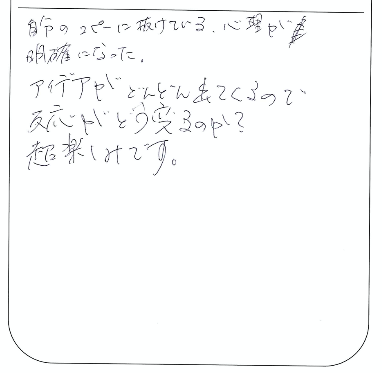 自分のコピーに抜けている、心理が
明確になった。
アイデアがどんどん出てくるので
反応がどう変るのか?
超楽しみです。